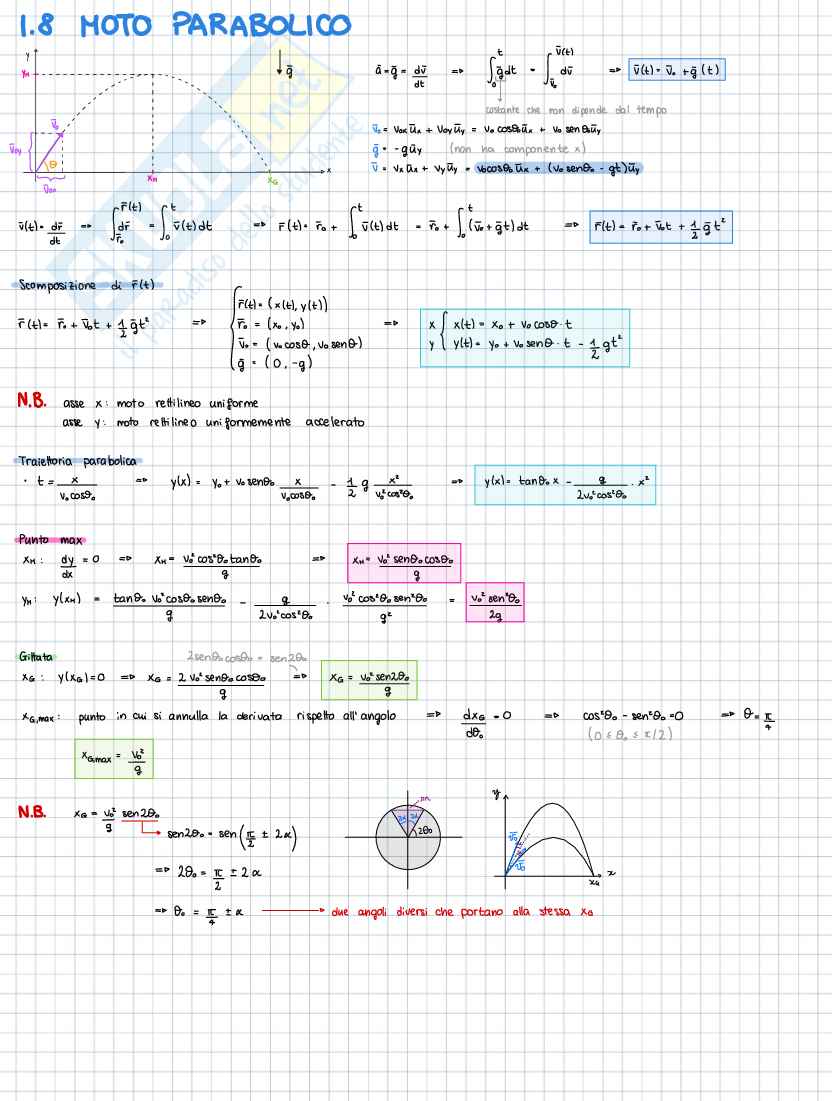 1.8 MOTO PARABOLICO
y
y_M
v̄₀
v̄₀y
θ
v̄₀x
x_M
x_G
x
ḡ
ā = ḡ = dv̄/dt => ∫₀ᵗ ḡdt = ∫_v̄₀^v̄(t) dv̄ => v̄(t) = v̄₀ + ḡ(t)
costante che non dipende dal tempo
v̄₀ = v₀x ūx + v₀y ūy = v₀ cosθ₀ ūx + v₀ senθ₀ ūy
ḡ = -gūy (non ha componente x)
v̄ = vx ūx + vy ūy = v₀cosθ₀ ūx + (v₀senθ₀ - gt)ūy
v̄(t) = dr̄/dt => ∫_r̄₀^r̄(t) dr̄ = ∫₀ᵗ v̄(t) dt => r̄(t) = r̄₀ + ∫₀ᵗ v̄(t) dt = r̄₀ + ∫₀ᵗ (v̄₀ + ḡt) dt => r̄(t) = r̄₀ + v̄₀t + 1/2 ḡt²
Scomposizione di r̄(t)
r̄(t) = r̄₀ + v̄₀t + 1/2 ḡt² => { r̄(t) = (x(t), y(t))
r̄₀ = (x₀, y₀)
v̄₀ = (v₀ cosθ, v₀ senθ)
ḡ = (0, -g)
=> x { x(t) = x₀ + v₀ cosθ · t
y { y(t) = y₀ + v₀ senθ · t - 1/2 gt²
N.B. asse x: moto rettilineo uniforme
asse y: moto rettilineo uniformemente accelerato
Traiettoria parabolica
· t = x/(v₀cosθ₀) => y(x) = y₀ + v₀ senθ₀ x/(v₀cosθ₀) - 1/2 g x²/(v₀²cos²θ₀) => y(x) = tanθ₀ x - g/(2v₀²cos²θ₀) · x²
Punto max
x_M: dy/dx = 0 => x_M = v₀² cos²θ₀ tanθ₀/g => x_M = v₀² senθ₀cosθ₀/g
y_M: y(x_M) = tanθ₀ v₀² cosθ₀ senθ₀/g - g/(2v₀²cos²θ₀) · v₀² cos²θ₀ sen²θ₀/g² = v₀² sen²θ₀/2g
Gittata
2senθ₀cosθ₀ = sen2θ₀
x_G: y(x_G) = 0 => x_G = 2 v₀² senθ₀ cosθ₀/g => x_G = v₀² sen2θ₀/g
x_G,max: punto in cui si annulla la derivata rispetto all'angolo => dx_G/dθ₀ = 0 => cos²θ₀ - sen²θ₀ = 0 => θ = π/4
(0 ≤ θ₀ ≤ π/2)
x_G,max = v₀²/g
N.B. x_G = v₀²/g sen2θ₀
sen2θ₀ = sen(π/2 ± 2α)
=> 2θ₀ = π/2 ± 2α
=> θ₀ = π/4 ± α
due angoli diversi che portano alla stessa x_G
2α 2α
2θ₀
y
x
x_G
SKUOLA.net
il paradiso dello studente